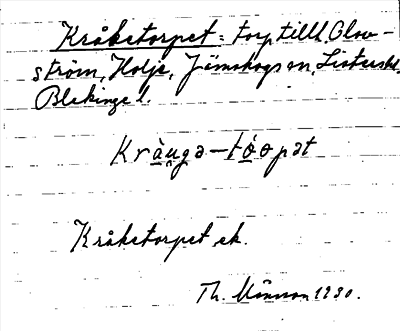 Kråketorpet: torp till Olov-
ström, Holje, Jämshögs sn, Listers hd.
Blekinge l.
Kràu̯gə-tóopət
Kråketorpet ek.
Th. Månsson 1930.